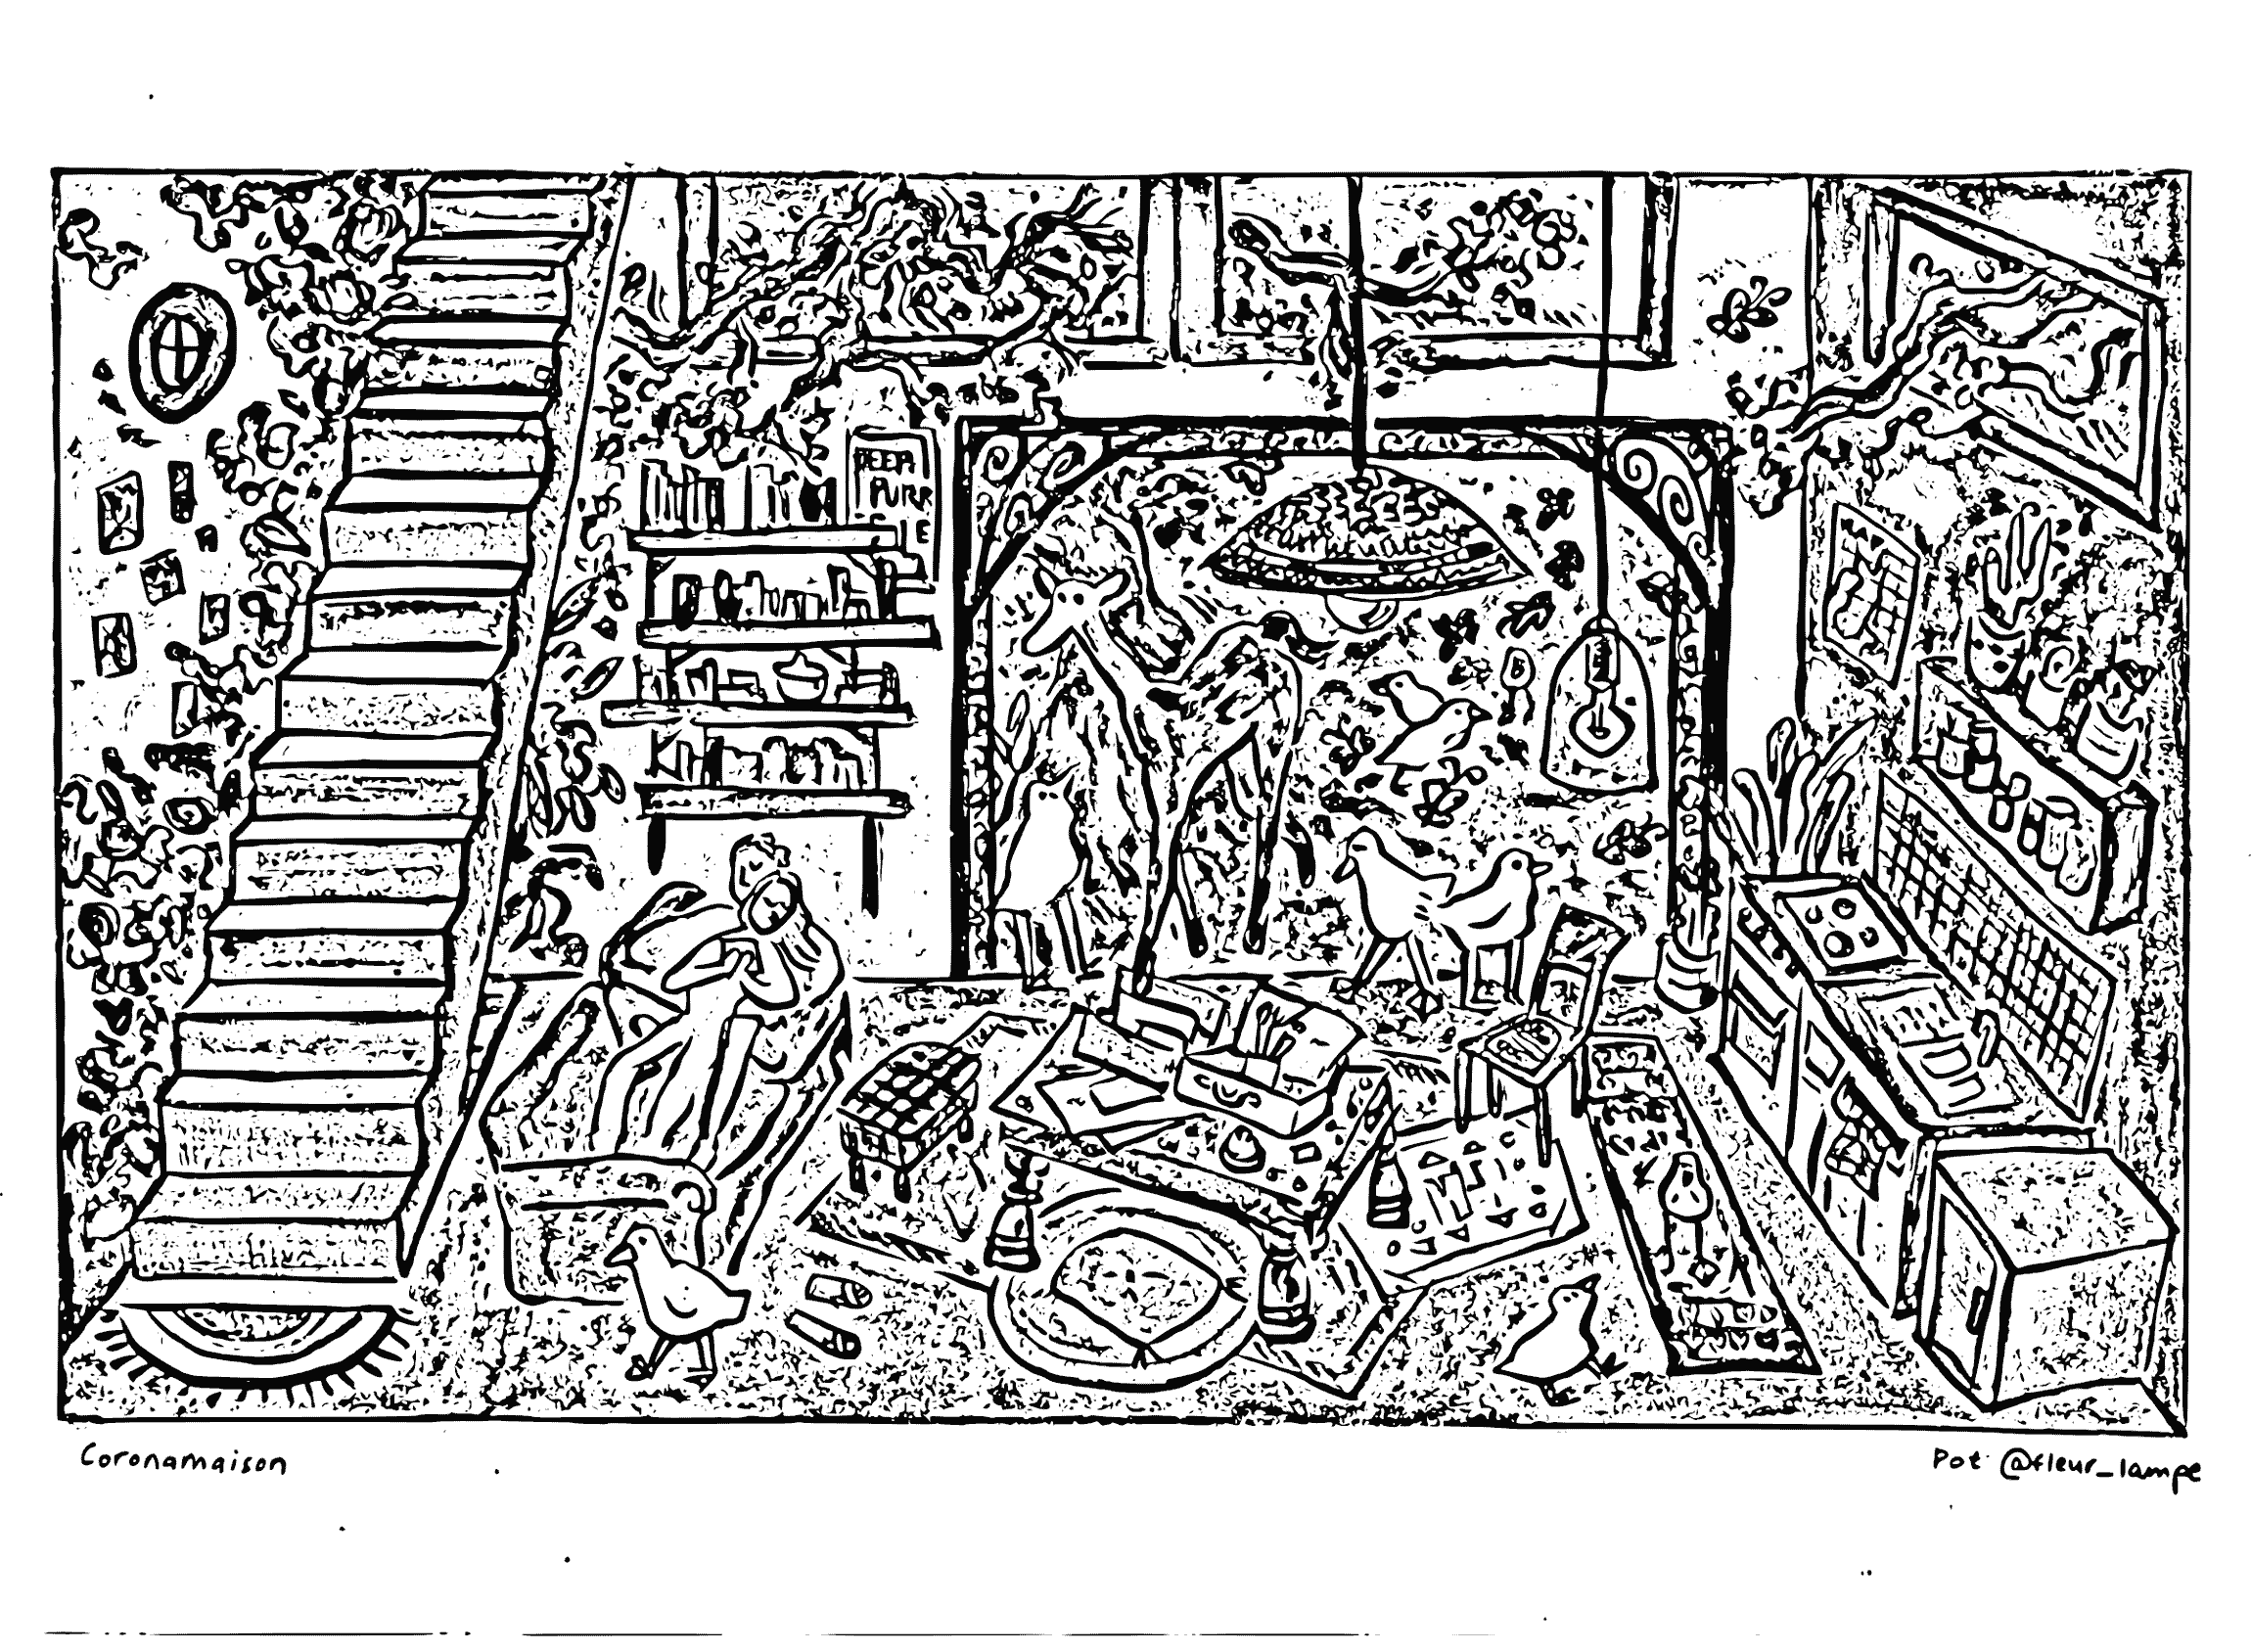 DEEP
PURR
LE
Coronamaison
Pot @fleur_lampe